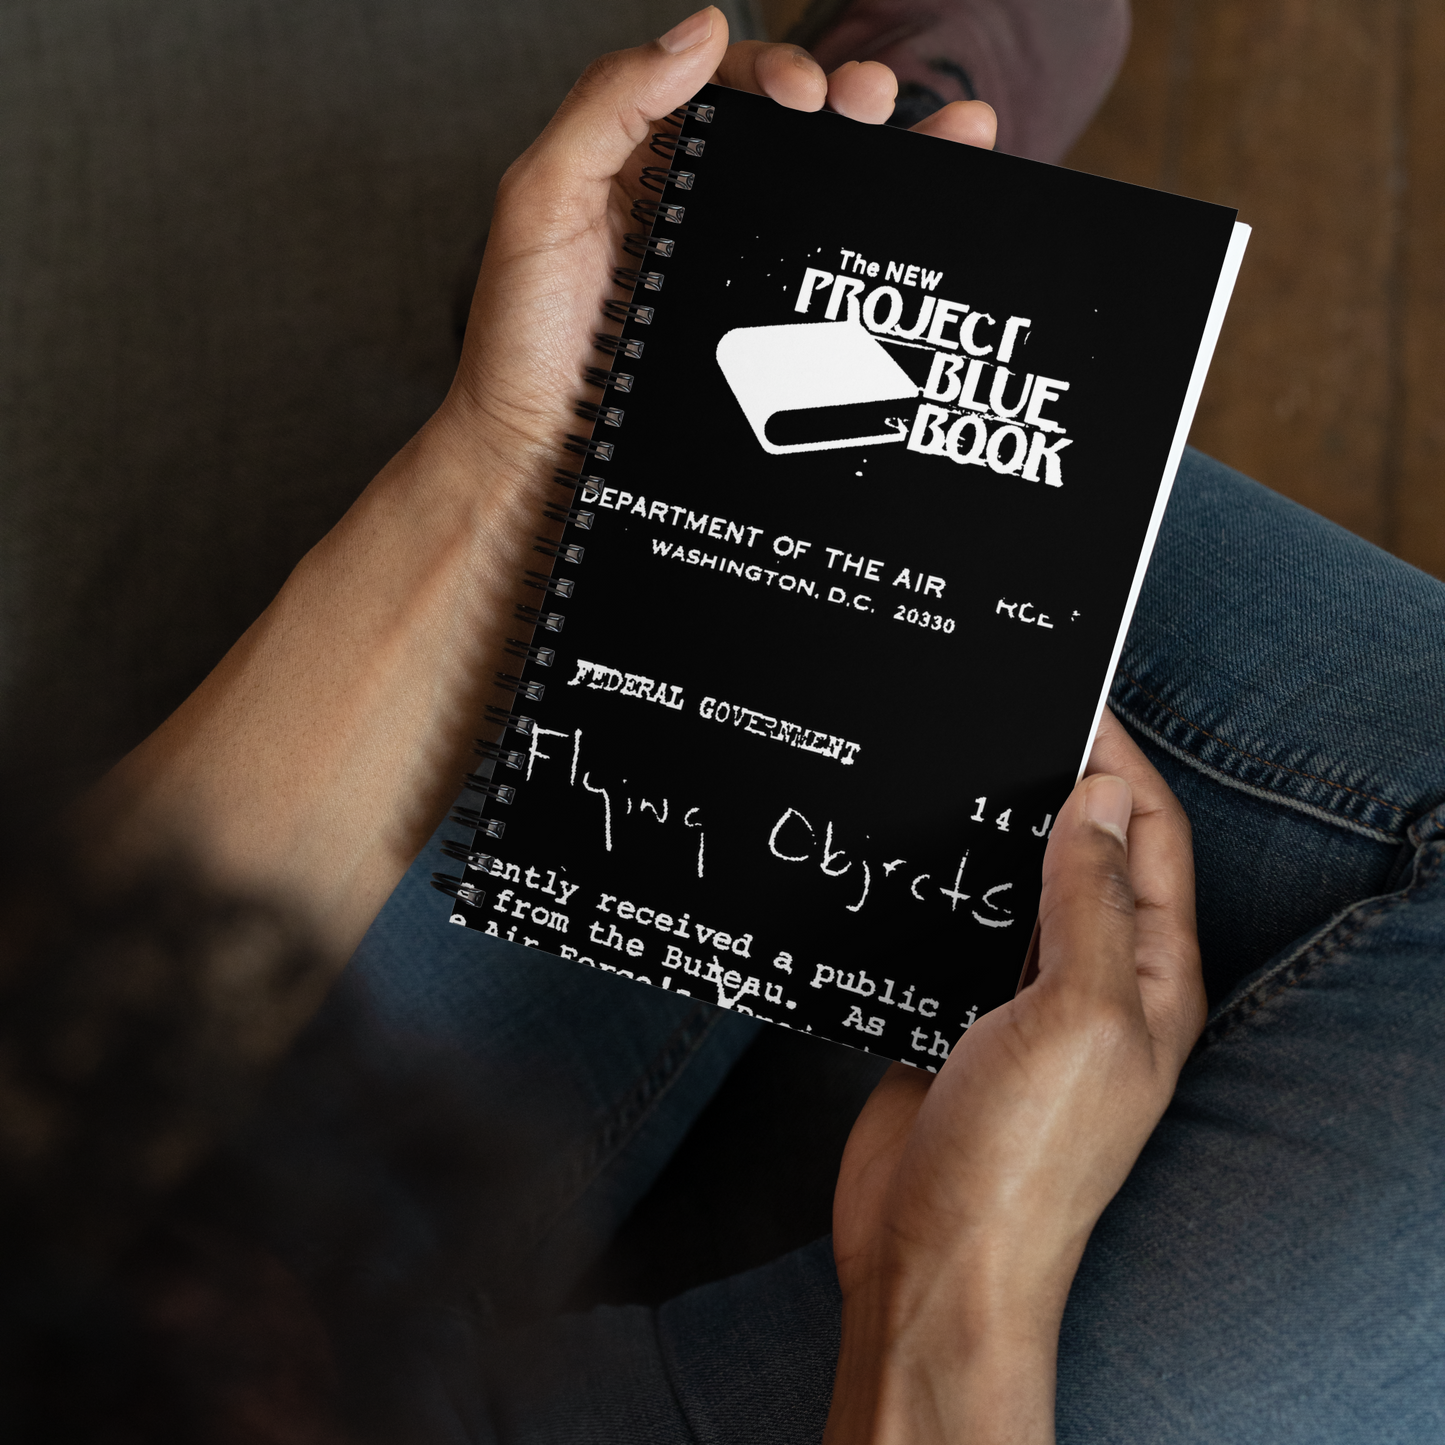 The NEW
PROJECT
BLUE
BOOK
DEPARTMENT OF THE AIR RCE
WASHINGTON, D.C. 20330
FEDERAL GOVERNMENT
Flying Objects
14 J
ently received a public i
from the Bureau. As th
e Air Force's